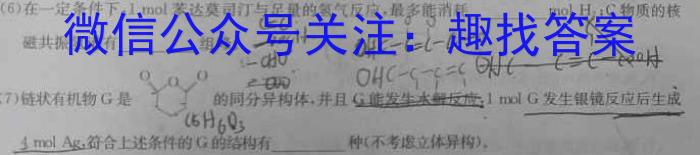 (6)在一定条件下,1 mol 苯达莫司汀与足量的氢气反应,最多能消耗 mol H₂;G 物质的核
磁共振 有 组
微信公众号关注：趣找答案
OHC-C-C=C
(7)链状有机物 G 是 的同分异构体,并且 G 能发生水解反应,1 mol G 发生银镜反应后生成
O O O
C5H6O3
4 mol Ag,符合上述条件的 G 的结构有 种(不考虑立体异构)。